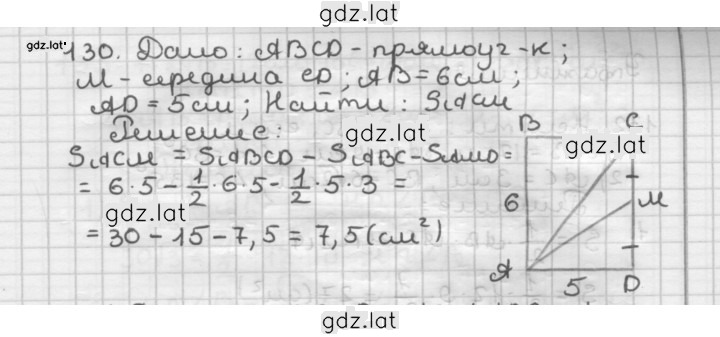 gdz.lat
gdz.lat
130. Дано: ABCD - прямоуг-к;
M - середина CD; AB = 6 см;
AD = 5 см; Найти: SACM
Решение:
gdz.lat
SACM = SABCD - SABC - SAMD =
= 6·5 - 1/2·6·5 - 1/2·5·3 =
gdz.lat
= 30 - 15 - 7,5 = 7,5 (см²)
B C
gdz.lat
6 M
A 5 D
gdz.lat